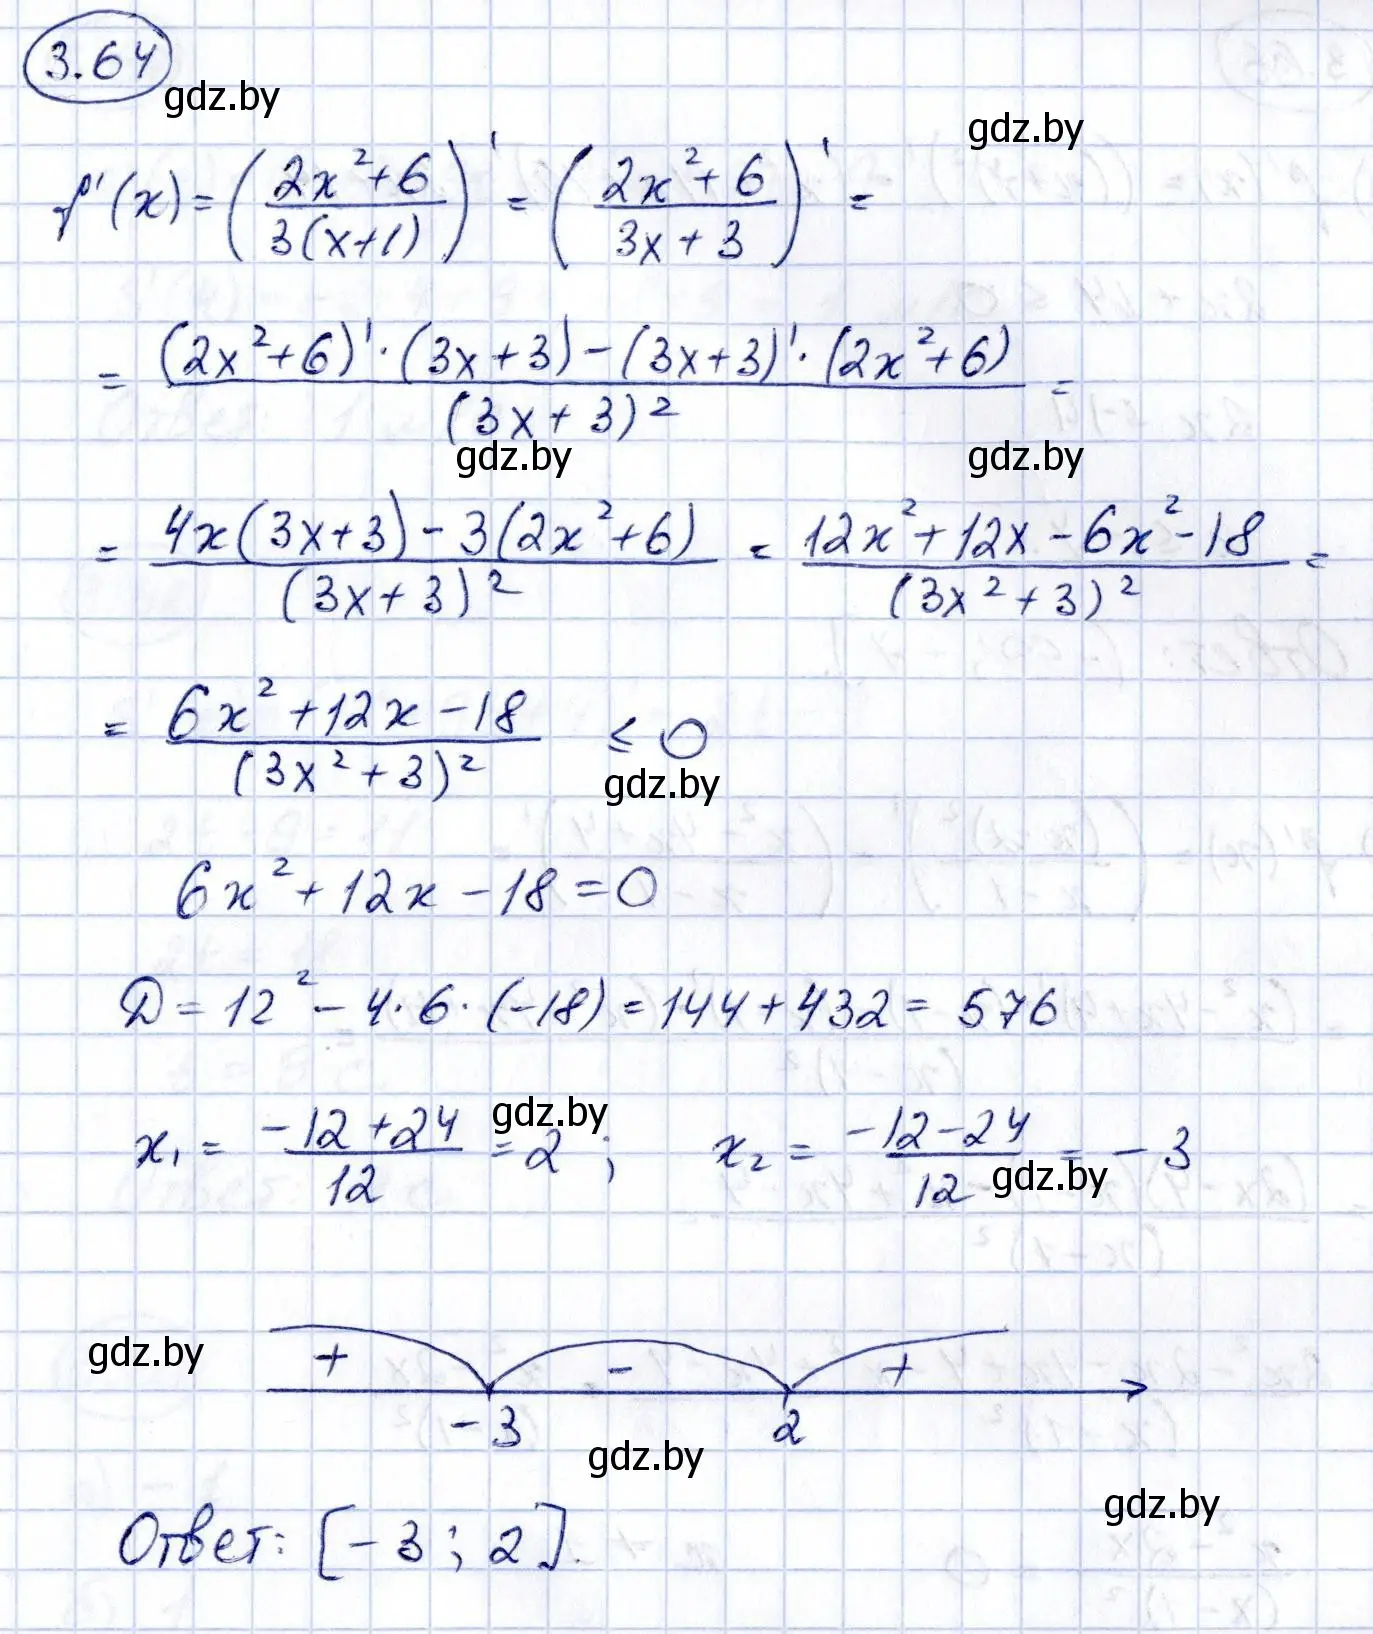 3.64
gdz.by
gdz.by
f'(x) = ((2x²+6)/(3(x+1)))' = ((2x²+6)/(3x+3))' =
= ((2x²+6)'·(3x+3)-(3x+3)'·(2x²+6))/((3x+3)²) =
gdz.by
gdz.by
= (4x(3x+3)-3(2x²+6))/((3x+3)²) = (12x²+12x-6x²-18)/((3x²+3)²) =
= (6x²+12x-18)/((3x²+3)²) ≤ 0
gdz.by
6x²+12x-18=0
D = 12² - 4·6·(-18) = 144+432 = 576
gdz.by
x₁ = (-12+24)/12 = 2 ; x₂ = (-12-24)/12 = -3
gdz.by
gdz.by
+ - +
-3 2
gdz.by
gdz.by
Ответ: [-3; 2].